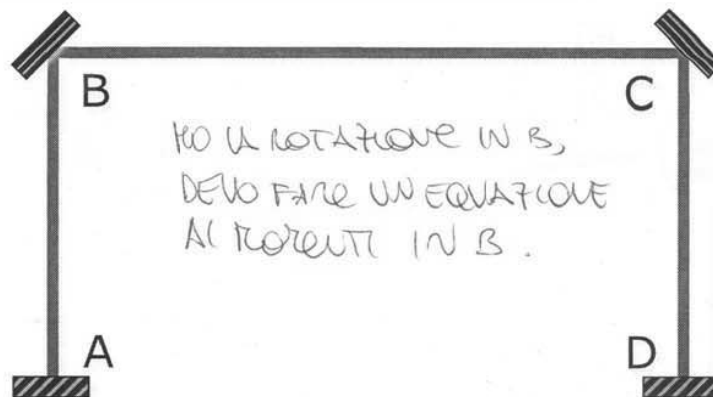 B
C
HO LA ROTAZIONE IN B,
DEVO FARE UN EQUAZIONE
AI MOMENTI IN B.
A
D